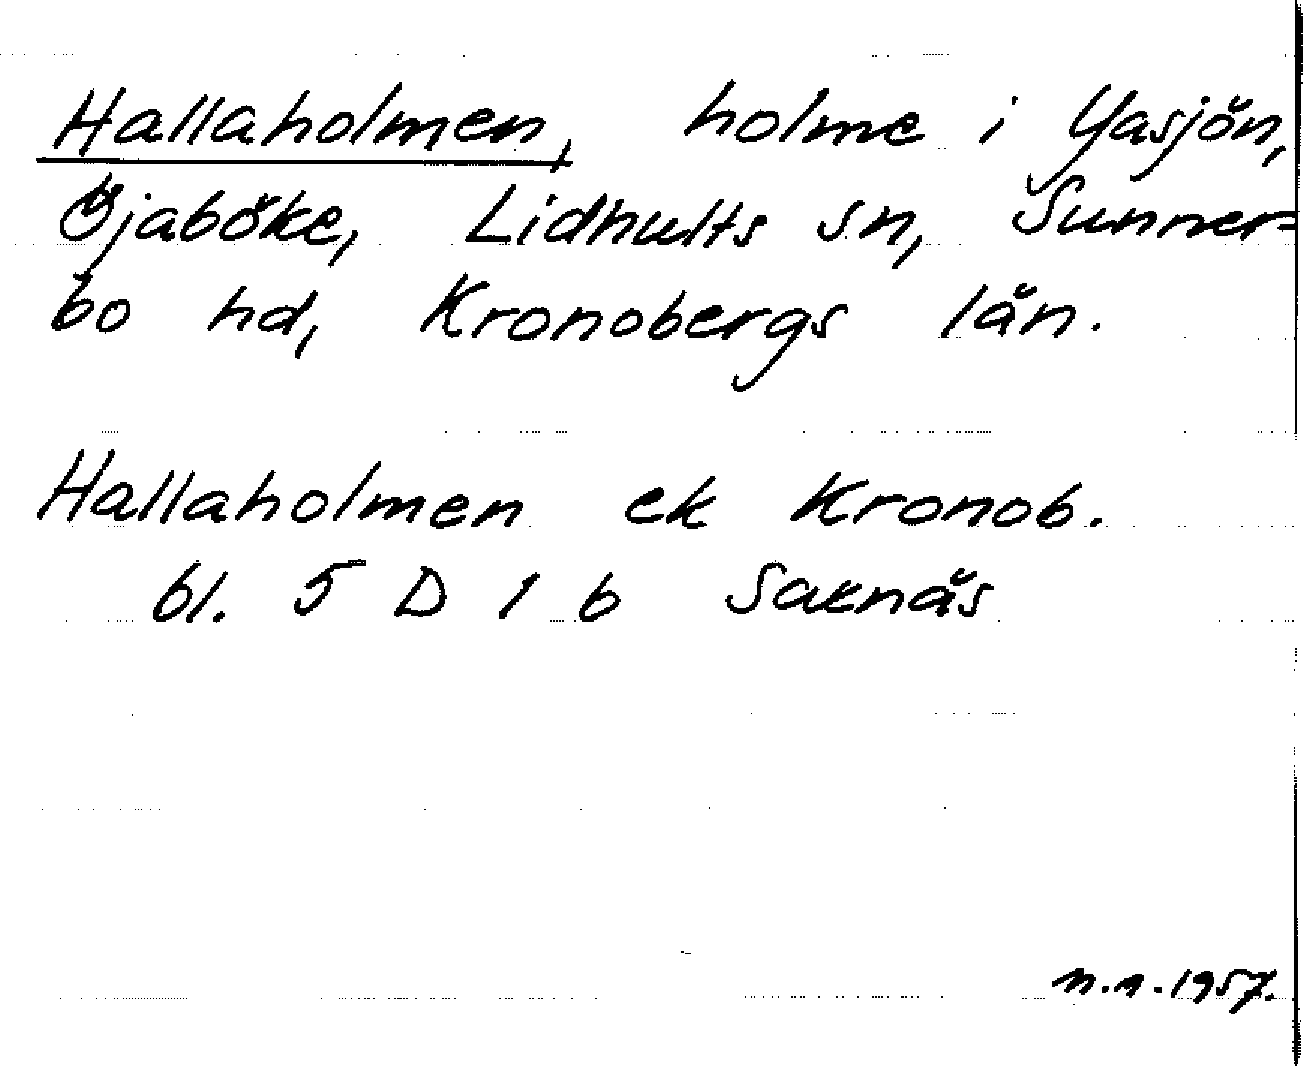 Hallaholmen, holme i Yasjön,
Öjaböke, Lidhults sn, Sunner=
bo hd, Kronobergs län.
Hallaholmen ek Kronob.
bl. 5 D 1 b Saxnäs
n.n. 1957.